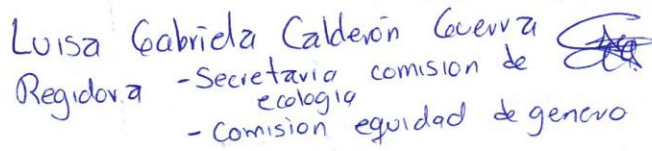 Luisa Gabriela Calderón Guerra
Regidora - Secretaria comision de
ecologia
- Comision equidad de genero